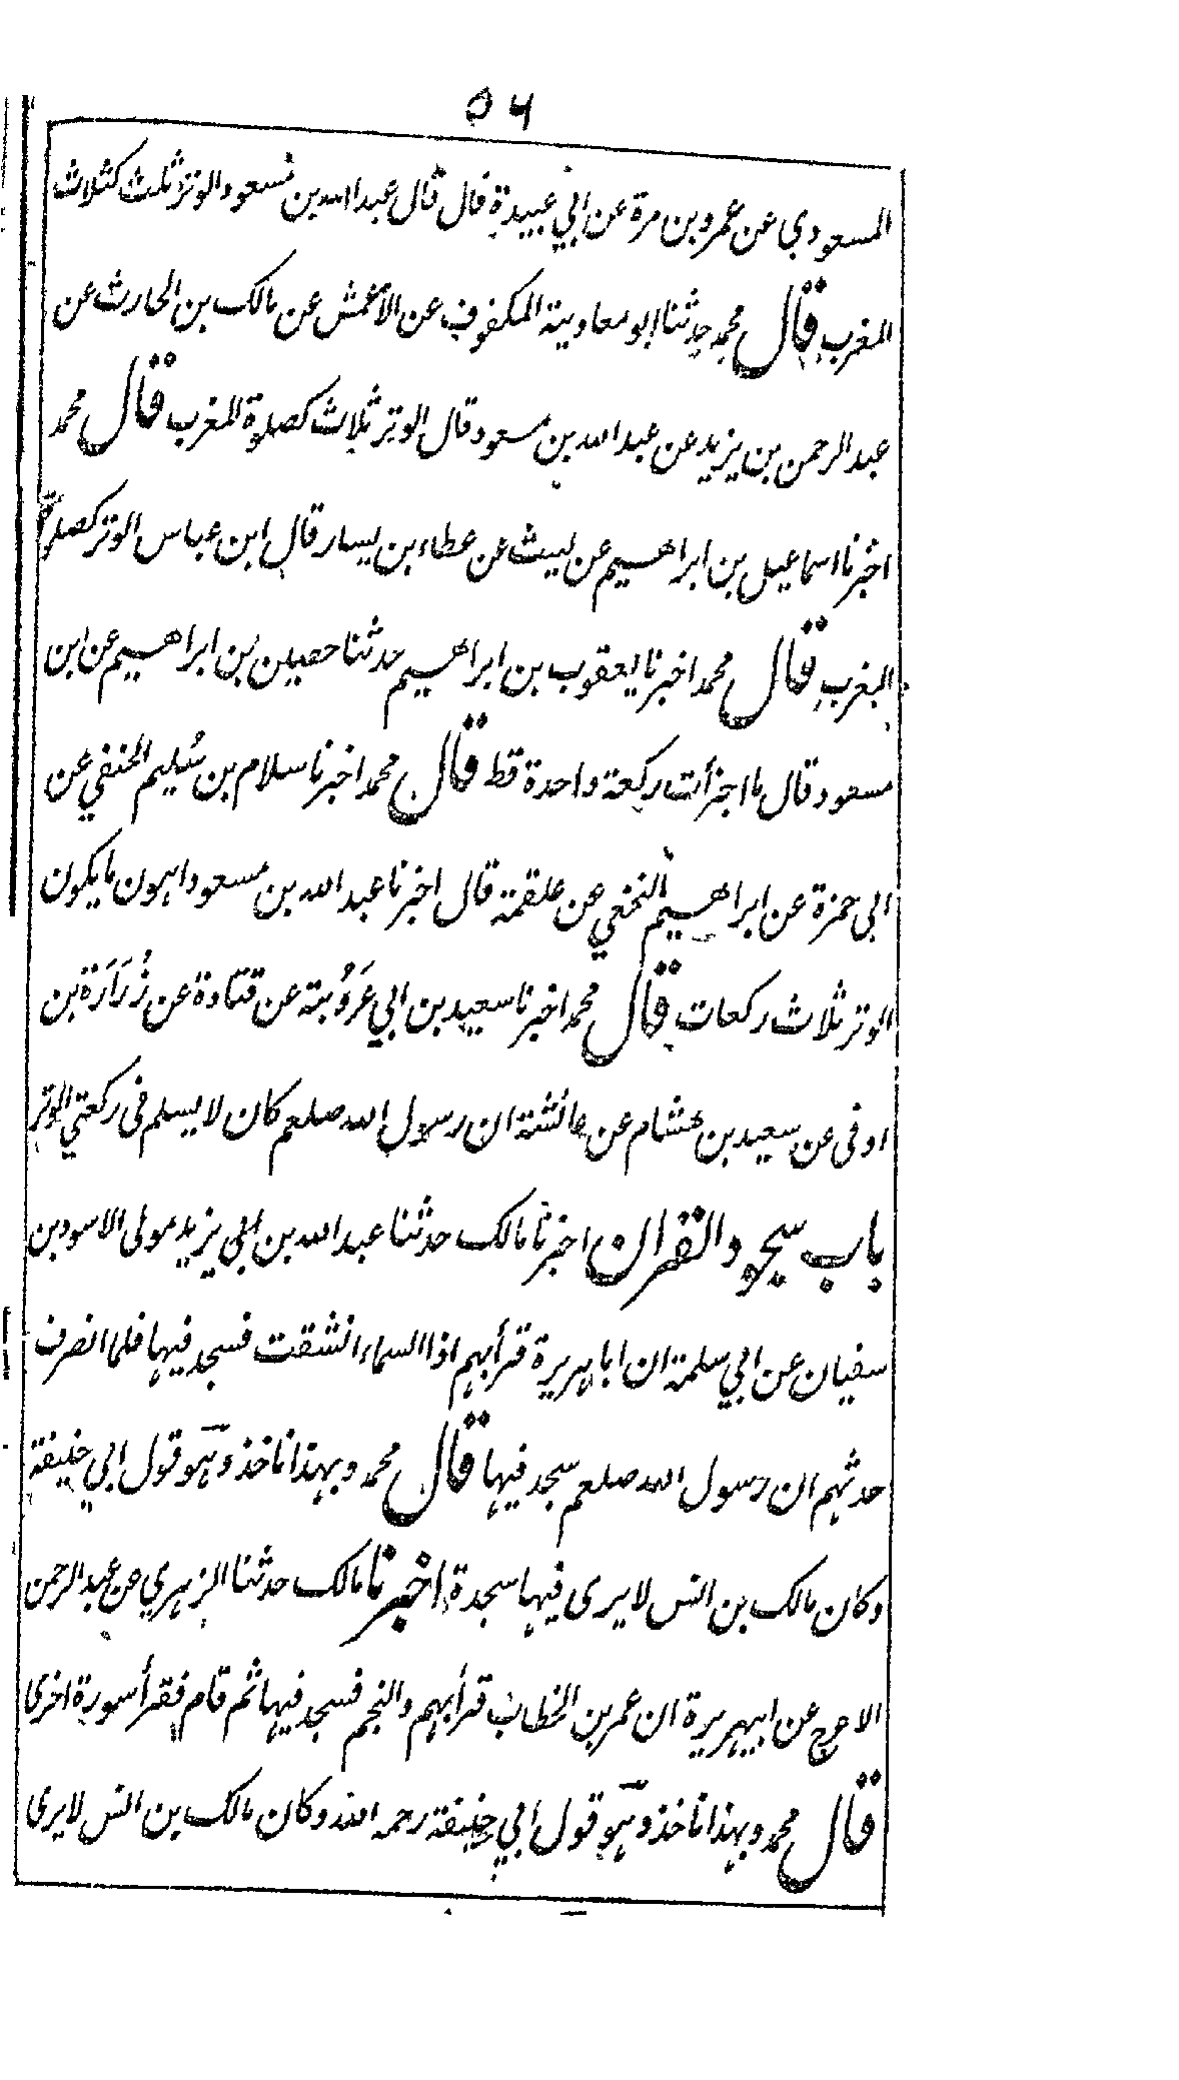 ٥٦
المسعودي عن عمرو بن مرة عن ابي عبيدة قال قال عبد الله بن مسعود الوتر ثلث كثلاث
المغرب قال محمد حدثنا ابو معاوية المكفوف عن الأعمش عن مالك بن الحارث عن
عبد الرحمن بن يزيد عن عبد الله بن مسعود قال الوتر ثلاث كصلوة المغرب قال محمد
اخبرنا اسماعيل بن ابراهيم عن ليث عن عطاء بن يسار قال ابن عباس الوتر كصلوة
المغرب قال محمد اخبرنا يعقوب بن ابراهيم حدثنا حصين بن ابراهيم عن ابن
مسعود قال ما اجزأت ركعة واحدة قط قال محمد اخبرنا سلام بن سُليم الحنفي عن
ابي حمزة عن ابراهيم النخعي عن علقمة قال اخبرنا عبد الله بن مسعود اهون ما يكون
الوتر ثلاث ركعات قال محمد اخبرنا سعيد بن ابي عَرُوبة عن قتادة عن زُرَارَة بن
اوفى عن سعيد بن هشام عن عائشة ان رسول الله صلعم كان لا يسلم فى ركعتي الوتر
باب سجود القران اخبرنا مالك حدثنا عبد الله بن ابي يزيد مولى الاسود بن
سفيان عن ابي سلمة ان ابا هريرة قرأ بهم اذا السماء انشقت فسجد فيها فلما انصرف
حدثهم ان رسول الله صلعم سجد فيها قال محمد و بهذا ناخذ وهو قول ابي حنيفة
وكان مالك بن انس لا يرى فيها سجدة اخبرنا مالك حدثنا الزهري عن عبد الرحمن
الاعرج عن ابيهريرة ان عمر بن الخطاب قرأ بهم والنجم فسجد فيها ثم قام فقرأ سورة اخرى
قال محمد و بهذا ناخذ وهو قول ابي حنيفة رحمه الله وكان مالك بن انس لا يرى